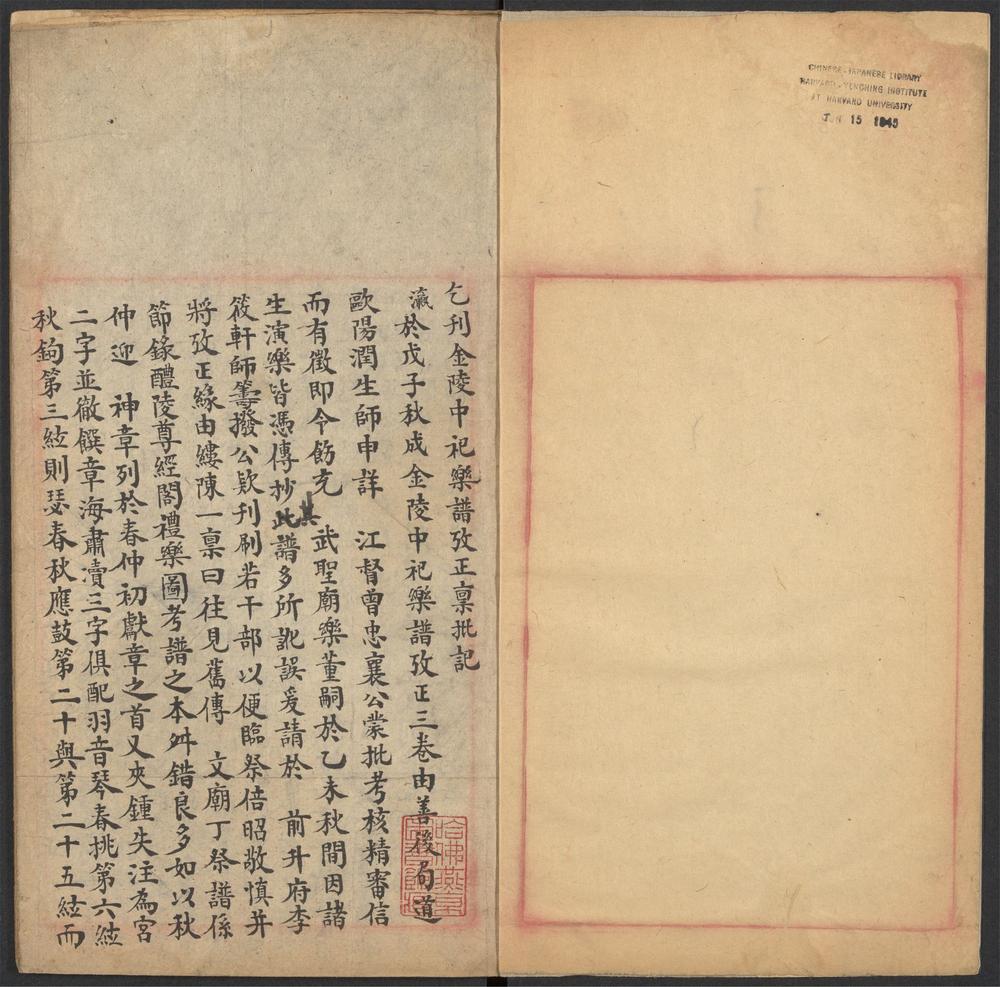 CHINESE-JAPANESE LIBRARY
HARVARD-YENCHING INSTITUTE
AT HARVARD UNIVERSITY
JUN 15 1945
乞刊金陵中祀樂譜攷正稟批記
瀛於戊子秋成金陵中祀樂譜攷正三卷由善後局道
歐陽潤生師申詳 江督曾忠襄公蒙批考核精審信
而有徵即令飭充 武聖廟樂董嗣於乙未秋間因諸
生演樂皆憑傳抄其此譜多所訛誤爰請於 前升府李
筱軒師籌撥公欵刊刷若干部以便臨祭倍昭敬慎并
將攷正緣由縷陳一稟曰往見舊傳 文廟丁祭譜係
節錄醴陵尊經閣禮樂圖考譜之本舛錯良多如以秋
仲迎 神章列於春仲初獻章之首又夾鍾失注為宮
二字並徹饌章海肅瀆三字俱配羽音琴春挑第六絃
秋鉤第三絃則瑟春秋應鼓第二十與第二十五絃而
哈佛燕京